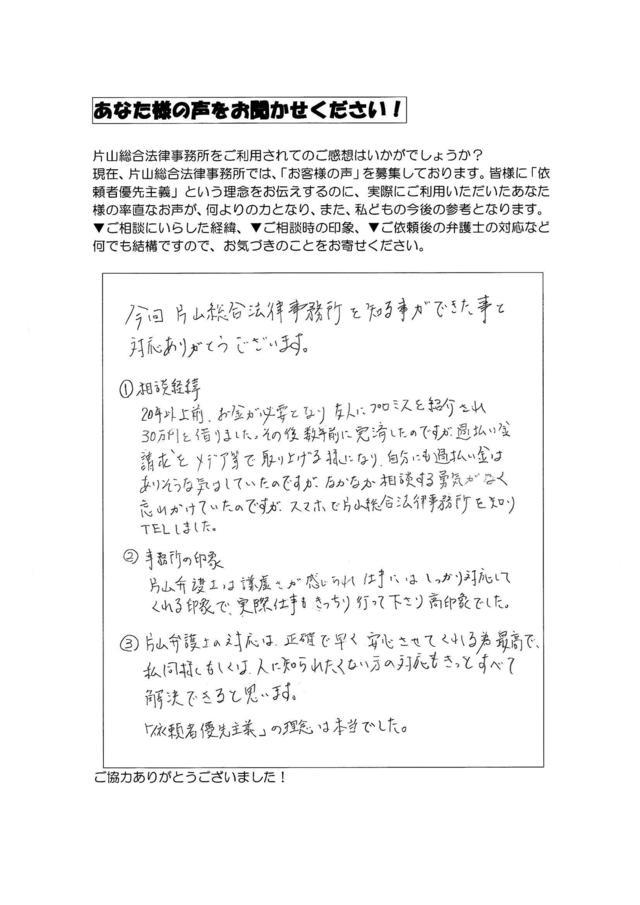 あなた様の声をお聞かせください！
片山総合法律事務所をご利用されてのご感想はいかがでしょうか？
現在、片山総合法律事務所では、「お客様の声」を募集しております。皆様に「依
頼者優先主義」という理念をお伝えするのに、実際にご利用いただいたあなた
様の率直なお声が、何よりの力となり、また、私どもの今後の参考となります。
▼ご相談にいらした経緯、▼ご相談時の印象、▼ご依頼後の弁護士の対応など
何でも結構ですので、お気づきのことをお寄せください。
今回 片山総合法律事務所を知る事ができた事と
対応ありがとうございます。
①相談経緯
20年以上前、お金が必要となり友人にプロミスを紹介され
30万円を借りました。その後数年前に完済したのですが過払い金
請求をメデア等で取り上げる様になり、自分にも過払い金は
ありそうな気はしていたのですが、なかなか相談する勇気がなく
忘れかけていたのですが、スマホで片山総合法律事務所を知り
TELしました。
②事務所の印象
片山弁護士は謙虚さが感じられ仕事にはしっかり対応して
くれる印象で、実際仕事もきっちり行って下さり高印象でした。
③片山弁護士の対応は、正確で早く安心させてくれる為最高で、
私同様もしくは、人に知られたくない方の対応もきっとすべて
解決できると思います。
「依頼者優先主義」の理念は本当でした。
ご協力ありがとうございました！